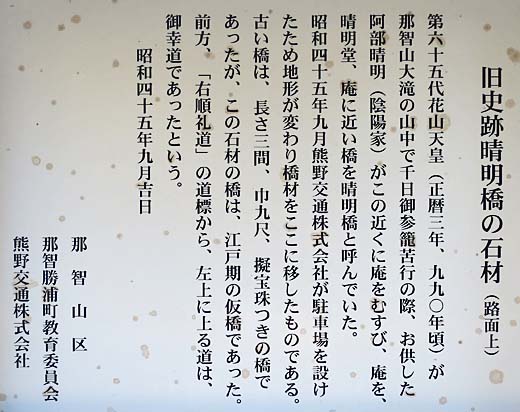 旧史跡晴明橋の石材（路面上）
第六十五代花山天皇（正暦三年、九九〇年頃）が
那智山大滝の山中で千日御参籠苦行の際、お供した
阿部晴明（陰陽家）がこの近くに庵をむすび、庵を、
晴明堂、庵に近い橋を晴明橋と呼んでいた。
昭和四十五年九月熊野交通株式会社が駐車場を設け
たため地形が変わり橋材をここに移したものである。
古い橋は、長さ三間、巾九尺、擬宝珠つきの橋で
あったが、この石材の橋は、江戸期の仮橋であった。
前方、「右順礼道」の道標から、左上に上る道は、
御幸道であったという。
昭和四十五年九月吉日
那智山区
那智勝浦町教育委員会
熊野交通株式会社